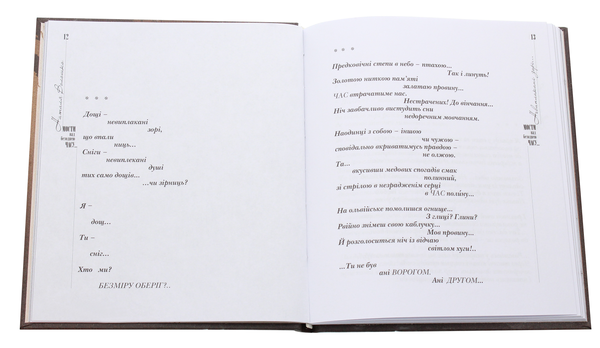 12
МОСТИ
над
безоднею
ЧАСУ...
* * *
Дощі –
невиплекані
зорі,
що впали
ниць...
Сніги –
невиплекані
душі
тих само дощів...
...чи зірниць?
Я –
дощ...
Ти –
сніг...
Хто ми?
БЕЗМІРУ ОБЕРІГ?..
13
МОСТИ
над
безоднею
ЧАСУ...
* * *
Предковічні степи в небо – птахою...
Так і линуть!
Золотою ниткою пам'яті
залатаю провину...
ЧАС втрачатиме нас.
Нестрачених! До вінчання...
Ніч завбачливо вистудить сни
недоречним мовчанням.
Наодинці з собою – іншою
чи чужою –
сповідально вкриватимусь правдою –
не олжою.
Та...
вкусивши медових спогадів смак
полинний,
зі стрілою в незрадженім серці
в ЧАС полину...
На ольвійське помолишся огнище...
З глиці? Глини?
Рвійно знімеш свою каблучку...
Мов провину...
Й розголоситься ніч із відчаю
світлом хуги!..
...Ти не був
ані ВОРОГОМ.
Ані ДРУГОМ...